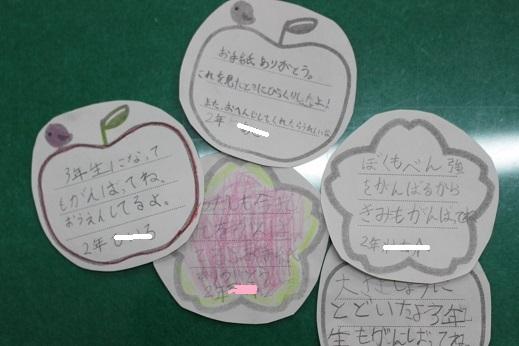 お手紙ありがとう。
これを見たときにびっくりしたよ!
また、おへんじしてくれたらうれしいな
2年
3年生になって
もがんばってね。
おうえんしてるよ。
2年
ぼくもべん強
をがんばるから
きみもがんばってね
2年
2年
とどいたよ3年
生もがんばってね。